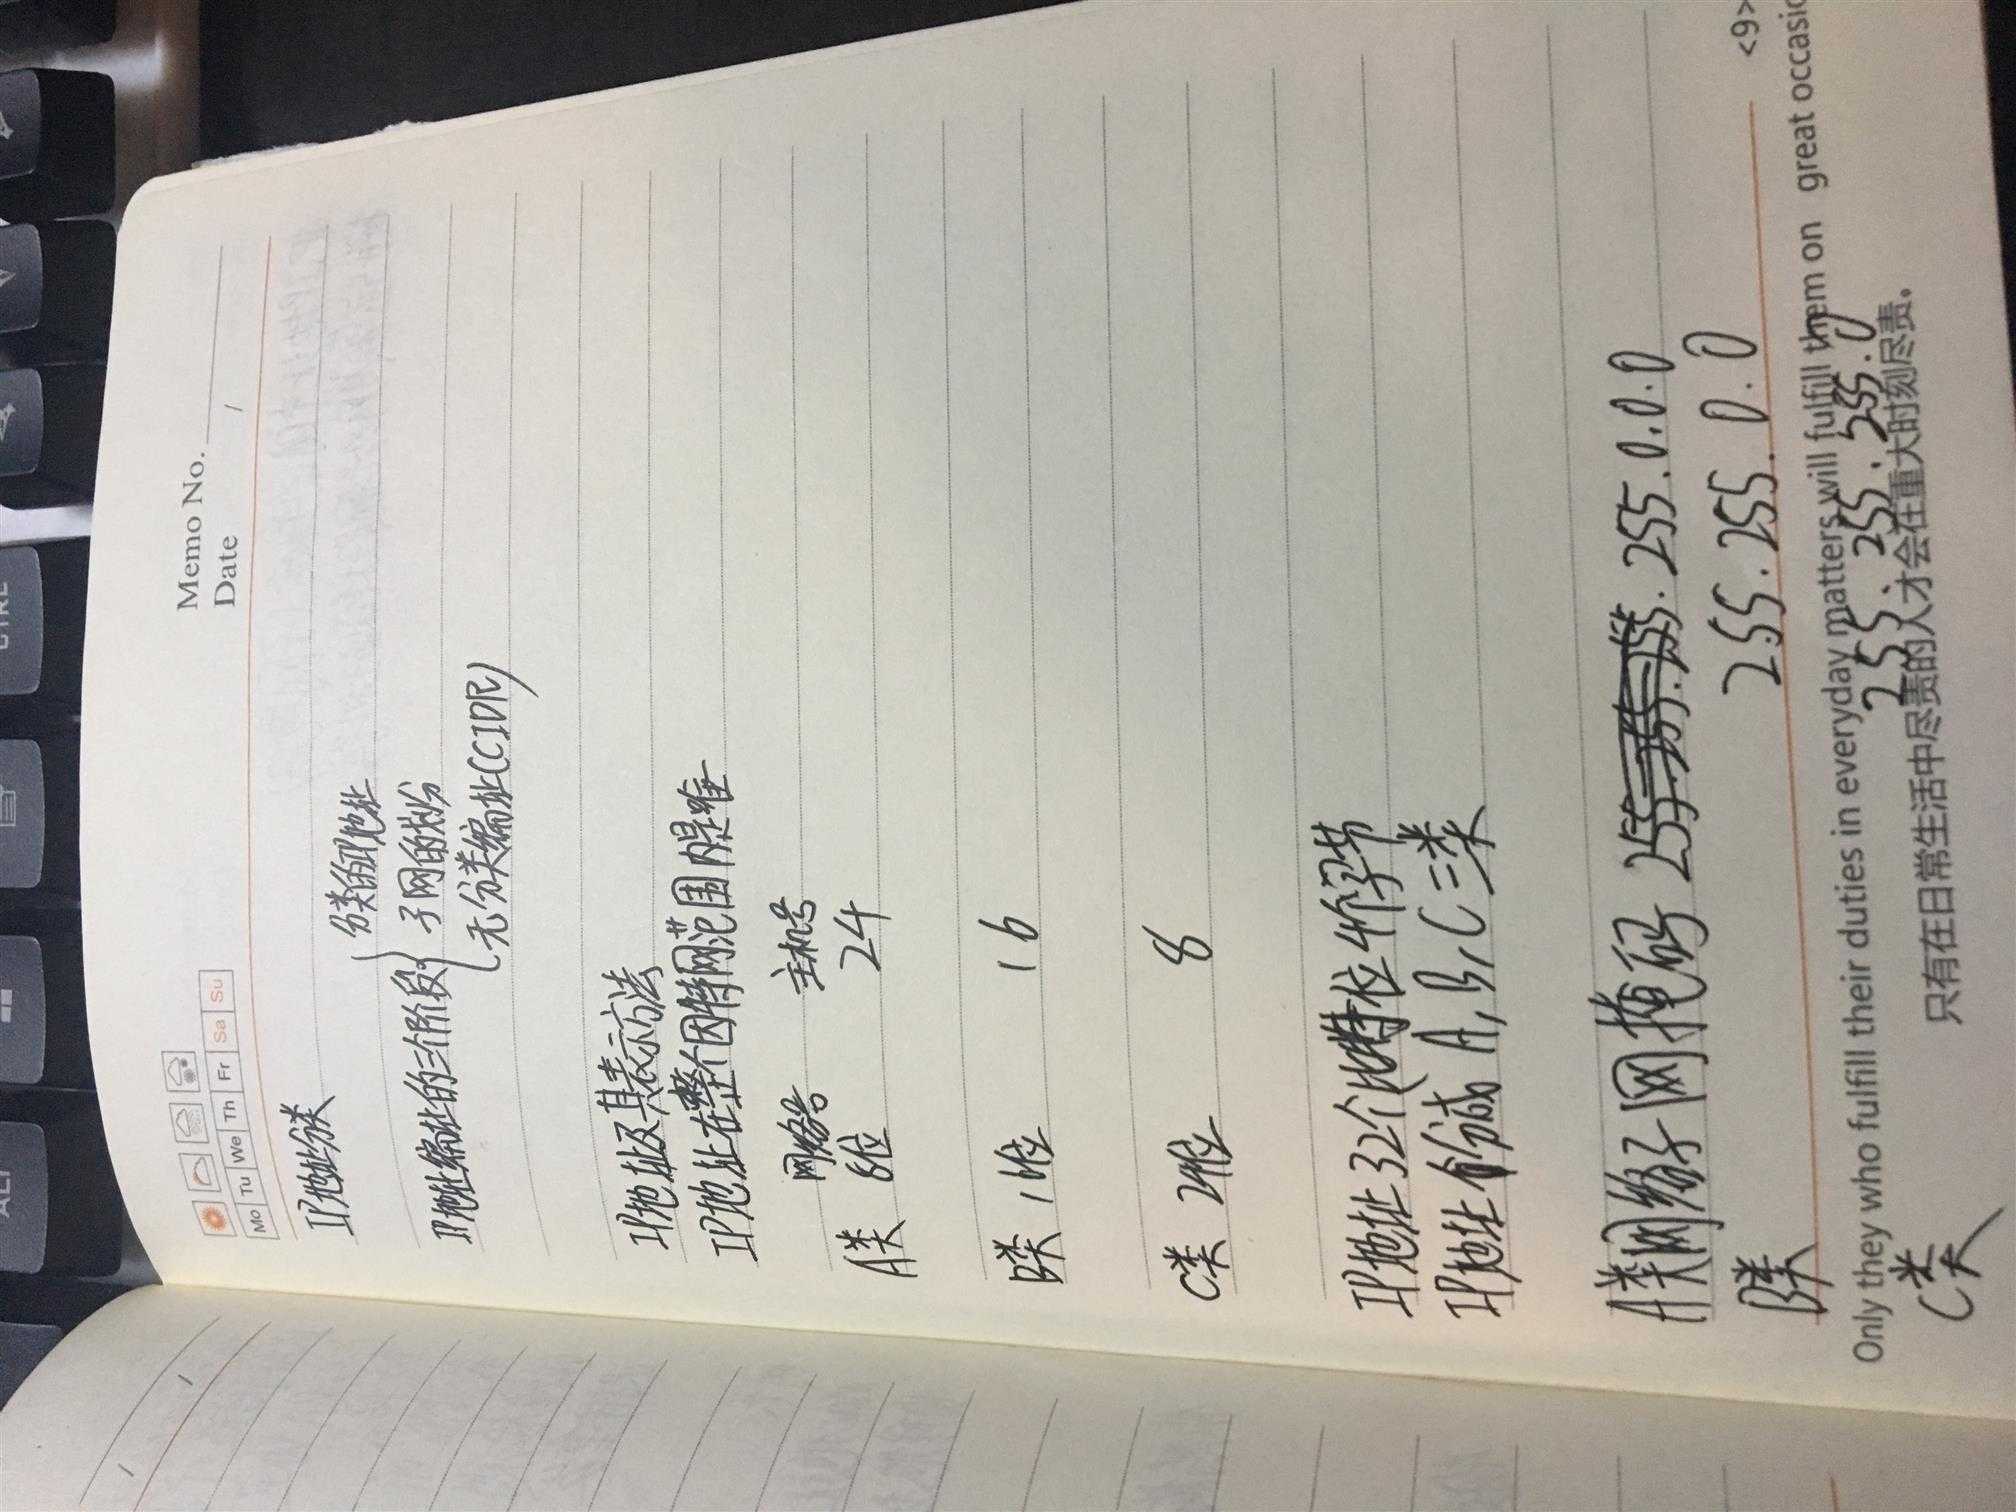 Memo No.
Date /
Mo Tu We Th Fr Sa Su
IP地址分类
分类的IP地址
IP地址编址的三个阶段
子网的划分
无分类编址(CIDR)
IP地址及其表示方法
IP地址在整个因特网范围内是唯一
网络号 主机号
A类 8位 24
B类 16位 16
C类 24位 8
IP地址32个比特位 4个字节
IP地址分成 A, B, C三类
A类网络子网掩码 255.0.0.0
B类 255.255.0.0
<9>
Only they who fulfill their duties in everyday matters will fulfill them on great occasio
C类 255.255.255.0
只有在日常生活中尽责的人才会在重大时刻尽责。